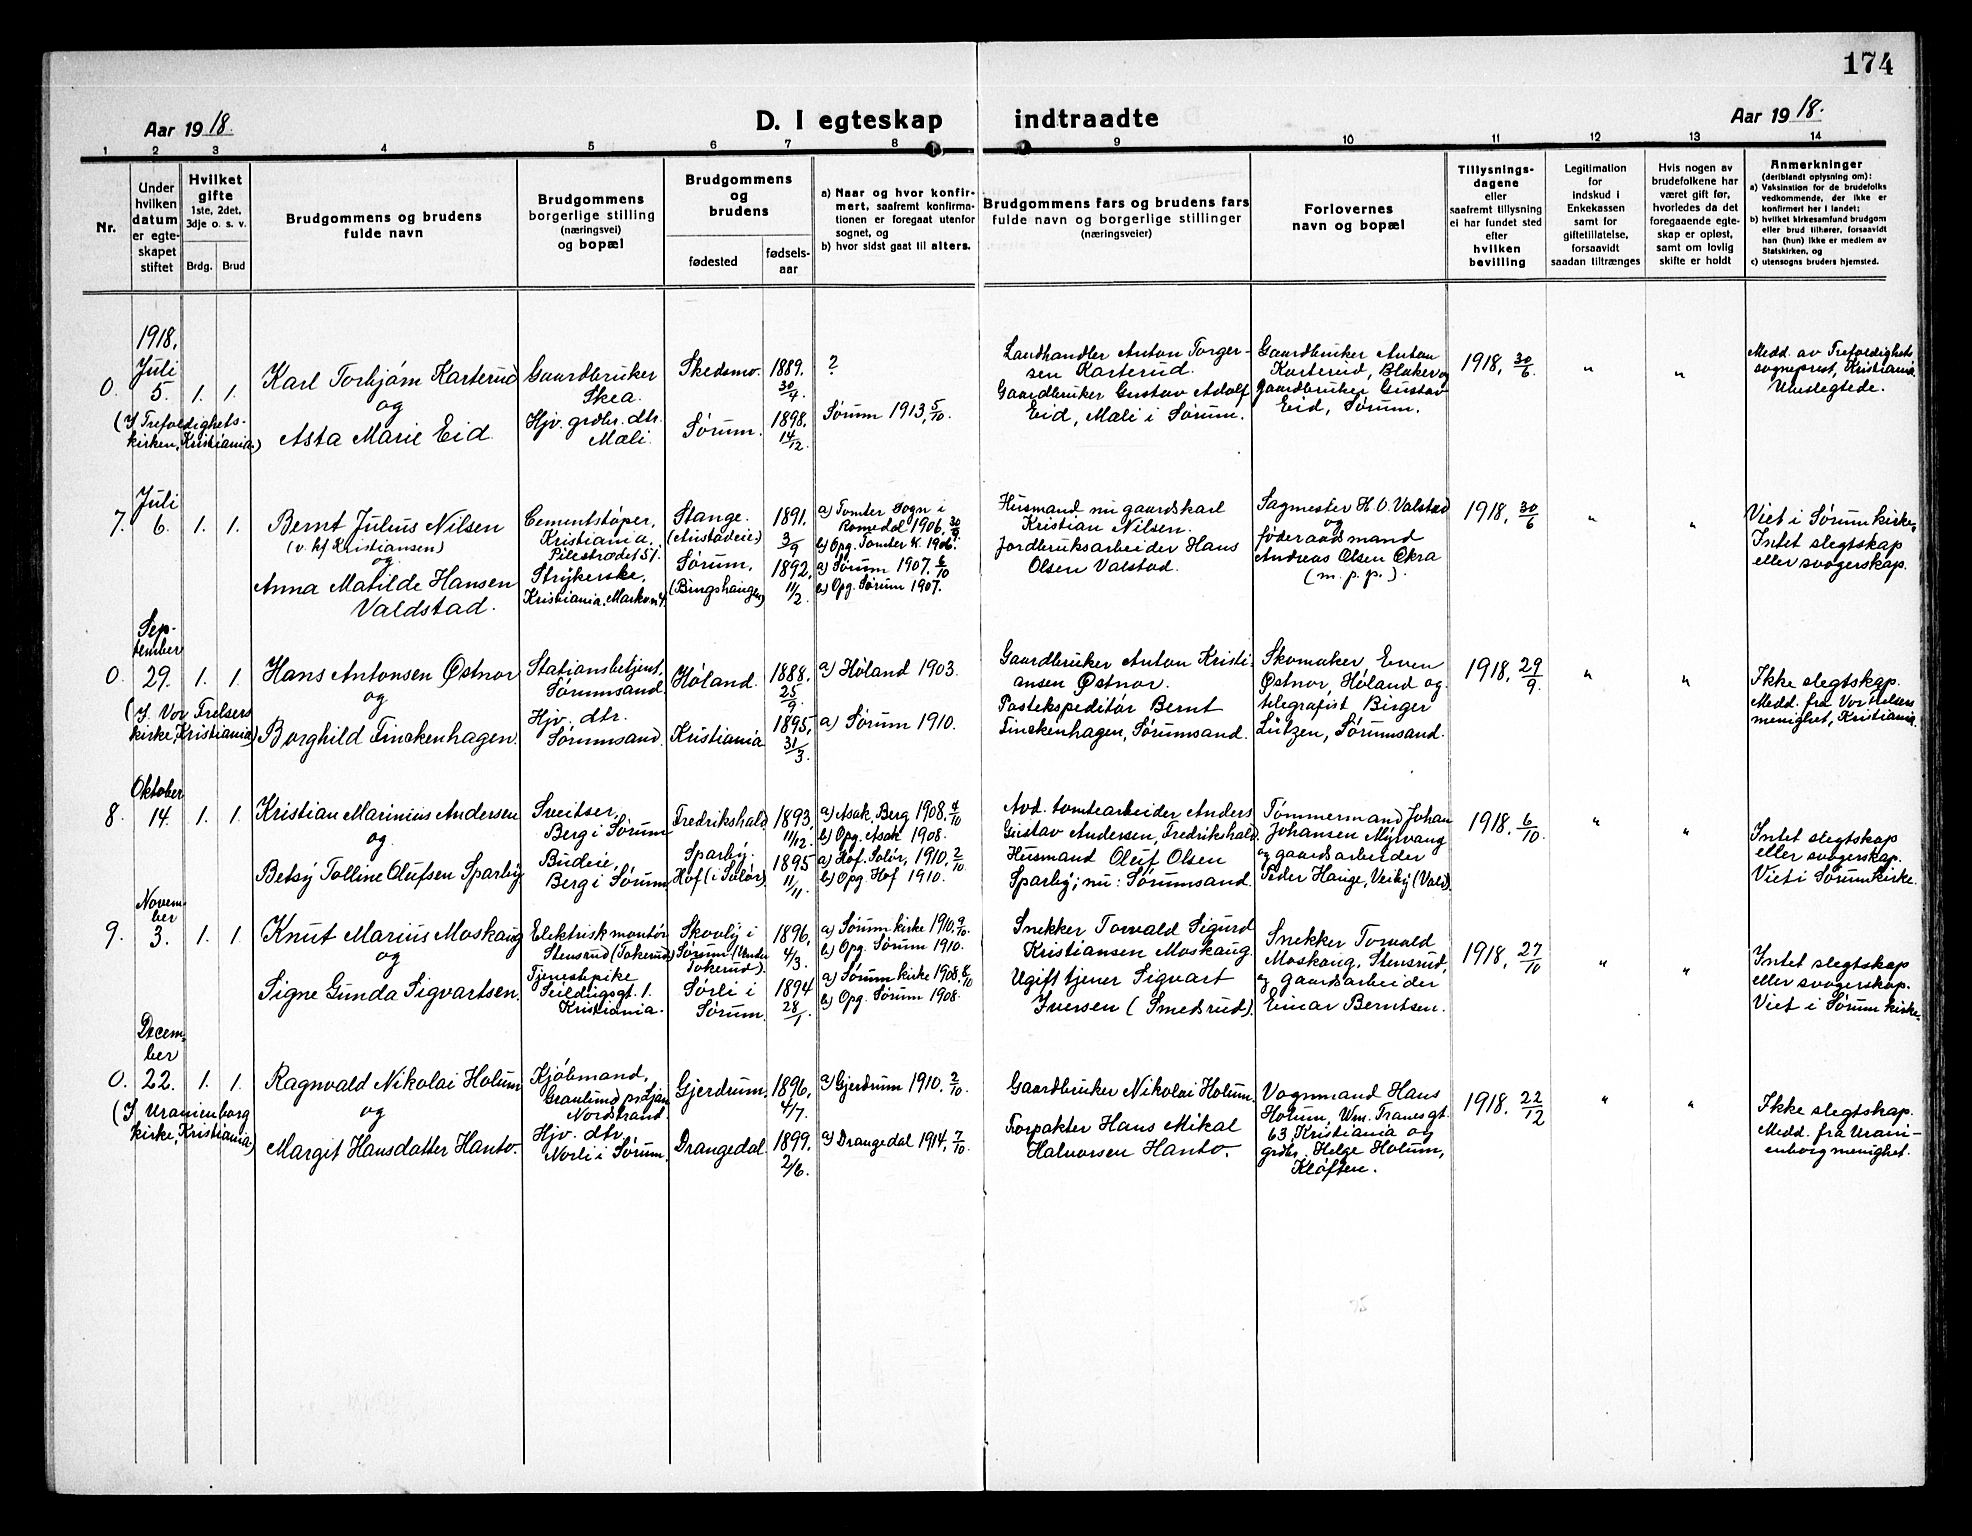 174
Aar 1918.
D. I egteskap indtraadte
Aar 1918.
1 2 3 4 5 6 7 8 9 10 11 12 13 14
Nr.
Under
hvilken
datum
er egte-
skapet
stiftet
Hvilket
gifte
1ste, 2det,
3dje o. s. v.
Brdg. Brud
Brudgommens og brudens
fulde navn
Brudgommens
borgerlige stilling
(næringsvei)
og bopæl
Brudgommens
og
brudens
fødested
fødsels-
aar
a) Naar og hvor konfir-
mert, saafremt konfirma-
tionen er foregaat utenfor
sognet, og
b) hvor sidst gaat til alters.
Brudgommens fars og brudens fars
fulde navn og borgerlige stillinger
(næringsveier)
Forlovernes
navn og bopæl
Tillysnings-
dagene
eller
saafremt tillysning
ei har fundet sted
efter
hvilken
bevilling
Legitimation
for
indskud i
Enkekassen
samt for
giftetillatelse,
forsaavidt
saadan tiltrænges
Hvis nogen av
brudefolkene har
været gift før,
hvorledes da det
foregaaende egte-
skap er opløst,
samt om lovlig
skifte er holdt
Anmerkninger
(deriblandt oplysning om):
a) Vaksination for de brudefolks
vedkommende, der ikke er
konfirmert her i landet;
b) hvilket kirkesamfund brudgom
eller brud tilhører, forsaavidt
han (hun) ikke er medlem av
Statskirken, og
c) utensogns bruders hjemsted.
1918,
Juli
0. 5. 1. 1.
(I Trefoldighets-
kirken, Kristiania)
Karl Torbjørn Karterud
og
Asta Marie Eid.
Gaardbruker
Skea.
Hjv. grdbr. dtr.
Mali.
Skedsmo.
Sørum.
1889.
30/4
1898,
14/12
?
Sørum 1913, 5/10.
Landhandler Anton Torger-
sen Karterud.
Gaardbruker Gustav Adolf
Eid, Mali i Sørum.
Gaardbruker Anton
Karterud, Blaker og
gaardbruker Gustav
Eid, Sørum.
1918, 30/6
"
"
Medd. av Trefoldighets
sogneprest, Kristiania.
Uslegtede.
Juli
7. 6. 1. 1.
Bernt Julius Nilsen
(v. hf Kristiansen)
og
Anna Matilde Hansen
Valdstad.
Cementstøper,
Kristiania.
Pilestrædet 51.
Strykerske,
Kristiania, Markvn 4.
Stange.
Sørum,
(Bingshaugen)
1891,
3/9
1892,
11/2
a) Tomter Sogn i
Romedal 1906, 30/9
b) Opg. Tomter K. 1906.
a) Sørum 1907. 6/10
b) Opg. Sørum 1907.
Husmand nu gaardskarl
Kristian Nilsen.
Jordbruksarbeider Hans
Olsen Valstad.
Sagmester H. O. Valstad
og
føderaadsmand
Andreas Olsen Økra
(m. p. p.).
1918, 30/6
"
"
Viet i Sørum kirke.
Intet slegtskap
eller svogerskap.
Sep-
tember
0. 29. 1. 1.
(I Vor Frelsers
kirke, Kristiania)
Hans Antonsen Østnor
og
Borghild Finckenhagen.
Stationsbetjent,
Sørumsand.
Hjv. dtr.
Sørumsand.
Høland.
Kristiania
1888,
25/9
1895,
31/3.
a) Høland 1903.
a) Sørum 1910.
Gaardbruker Anton Kristi-
ansen Østnor.
Postekspeditør Bernt
Finckenhagen, Sørumsand.
Skomaker Even
Østnor, Høland og
telegrafist Birger
Lützen, Sørumsand.
1918, 29/9.
"
"
Ikke slegtskap.
Medd. fra Vor Frelsers
menighet, Kristiania.
Oktober
8. 14. 1. 1.
Kristian Marinius Andersen
og
Betsy Tolline Olufsen Sparby
Sveitser,
Berg i Sørum
Budeie,
Berg i Sørum
Fredrikshald
Sparby.
Hof (i Solør).
1893,
11/12.
1895
11/11.
a) Asak, Berg 1908. 4/10
b) Opg. Asak 1908.
a) Hof. Solør, 1910. 2/10
b) Opg. Hof 1910.
Avd. tomtearbeider Anders
Gustav Andersen, Fredrikshald.
Husmand Oluf Olsen
Sparby; nu: Sørumsand.
Tømmermand Johan
Johansen Myrvang
og gaardsarbeider
Peder Hauge, Veiby (Vald).
1918, 6/10.
"
"
Intet slegtskap
eller svogerskap.
Viet i Sørum kirke.
Novem-
ber
9. 3. 1. 1.
Knut Marius Moskaug
og
Signe Gunda Sigvartsen.
Elektrisk montør
Stensrud (Tokerud)
Tjenestepike
Seildugsgt. 1.
Kristiania.
Skovly i
Sørum (Under
Tokerud).
Sørli i
Sørum.
1896,
4/3.
1894
28/1
a) Sørum kirke 1910. 9/10.
b) Opg. Sørum 1910.
a) Sørum kirke 1908. 8/10
b) Opg. Sørum 1908.
Snekker Torvald Sigurd
Kristiansen Moskaug.
Ugift tjener Sigvart
Iversen (Smedsrud).
Snekker Torvald
Moskaug, Stensrud,
og gaardsarbeider
Einar Berntsen.
1918, 27/10
"
"
Intet slegtskap
eller svogerskap.
Viet i Sørum kirke.
Decem-
ber
0. 22. 1. 1.
(I Uranienborg
kirke, Kristiania)
Ragnvald Nikolai Holum
og
Margit Hansdatter Hanto.
Kjøbmand,
Granlund pr. Ljan
Nordstrand.
Hjv. dtr.
Norli i Sørum.
Gjerdrum.
Drangedal.
1896,
4/7.
1899.
2/6.
a) Gjerdrum 1910. 2/10
a) Drangedal 1914, 7/10
Gaardbruker Nikolai Holum.
Forpakter Hans Mikal
Halvorsen Hanto.
Vognmand Hans
Holum, Wm. Tranesgt.
63, Kristiania og
grdbr. Helge Holum,
Kløften.
1918. 22/12
"
"
Ikke slegtskap.
Medd. fra Urani-
enborg menighet.